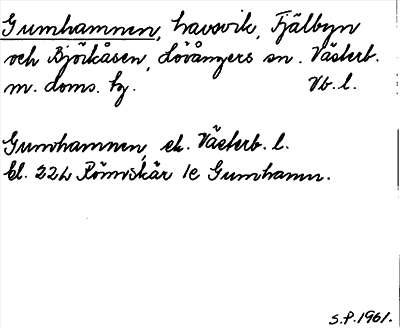 Gumhamnen, havsvik, Fjälbyn
och Björkåsen, Lövångers sn. Västerb.
m. doms. hg. Vb. l.
Gumhamnen, ek. Västerb. l.
bl. 22L Römskär 1e Gumhamn.
S.P. 1961.